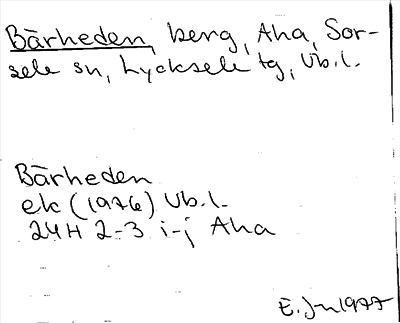 Bärheden, berg, Aha, Sor-
sele sn, Lycksele tg, Vb.l.
Bärheden
ek (1976) Vb.l.
24H 2-3 i-j Aha
E. Jn 1977